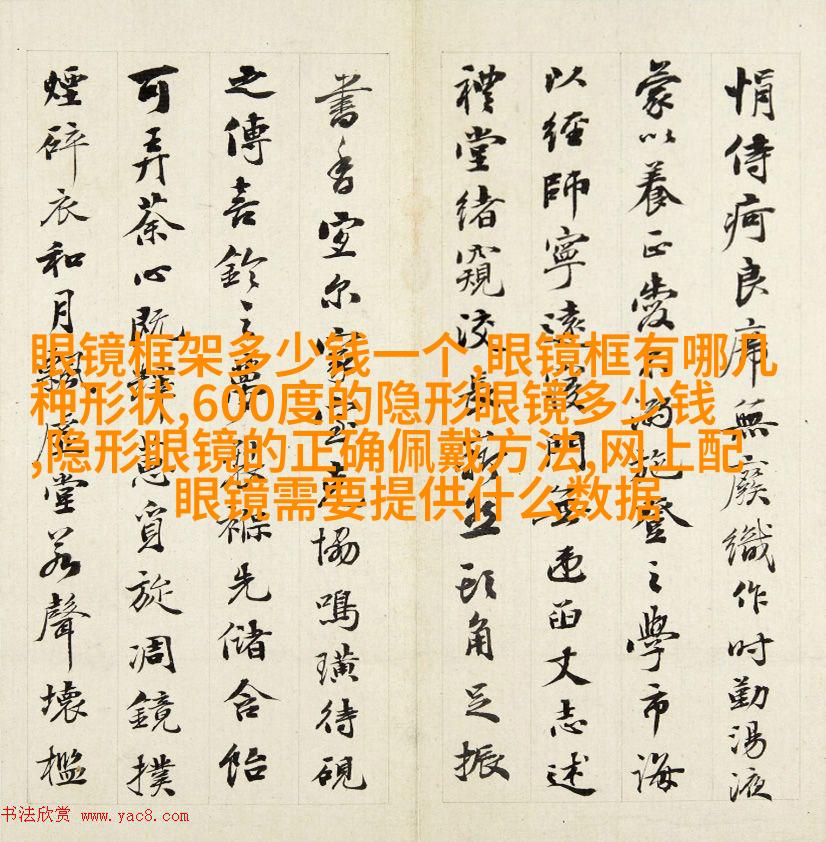 侍疴良席無廢織作时勤湯液
蒙以養正日施登之學市海
以經師寧遠門無丈志述
禮堂緒窺頭角足振
書香室尔協鳴璜待硯
之傳喜鈴之夢褓先儲含飴
可弄茶心既思覓旋凋鏡撲
煙碎衣和月堂若聲壞檻
眼镜框架多少钱一个 眼镜框有哪几
种形状,600度的隐形眼镜多少钱
,隐形眼镜的正确佩戴方法,网上配
眼镜需要提供什么数据
书法欣赏 www.yac8.com